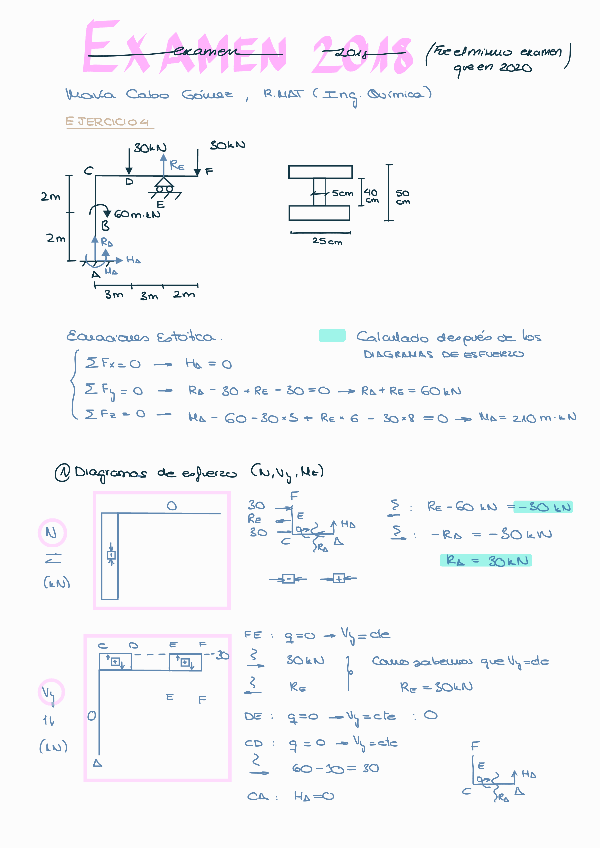 EXAMEN 2018
examen 2018 (Fue el mismo examen
que en 2020
María Cabo Gómez, R.MAT (Ing. Química)
EJERCICIO 4
30kN 30kN
RE
C D F
E
2m
60m·kN
B
2m
RA
HA
MA
A
3m 3m 2m
5cm 40 cm 50 cm
25cm
Ecuaciones Estática:
Calculado después de los
DIAGRAMAS DE ESFUERZO
ΣFx=0 → HA = 0
ΣFy=0 → RA - 30 + RE - 30 = 0 → RA + RE = 60 kN
ΣFz=0 → MA - 60 - 30×3 + RE×6 - 30×8 = 0 → MA = 210 m·kN
① Diagramas de esfuerzo (N, Vy, Mz)
N
(kN)
0
+
F
30
RE E
30
C RA A
HA
- +
: RE - 60 kN = -30 kN
: -RA = -30kN
RA = 30kN
Vy
(kN)
C D E F
30
+ +
E F
0
A
FE : q=0 → Vy = cte
30kN
RE
Como sabemos que Vy=cte
RE = 30kN
DE : q=0 → Vy=cte : 0
CD : q = 0 → Vy=cte
60-30 = 30
CA : HA=0
F
E
HA
C RA A